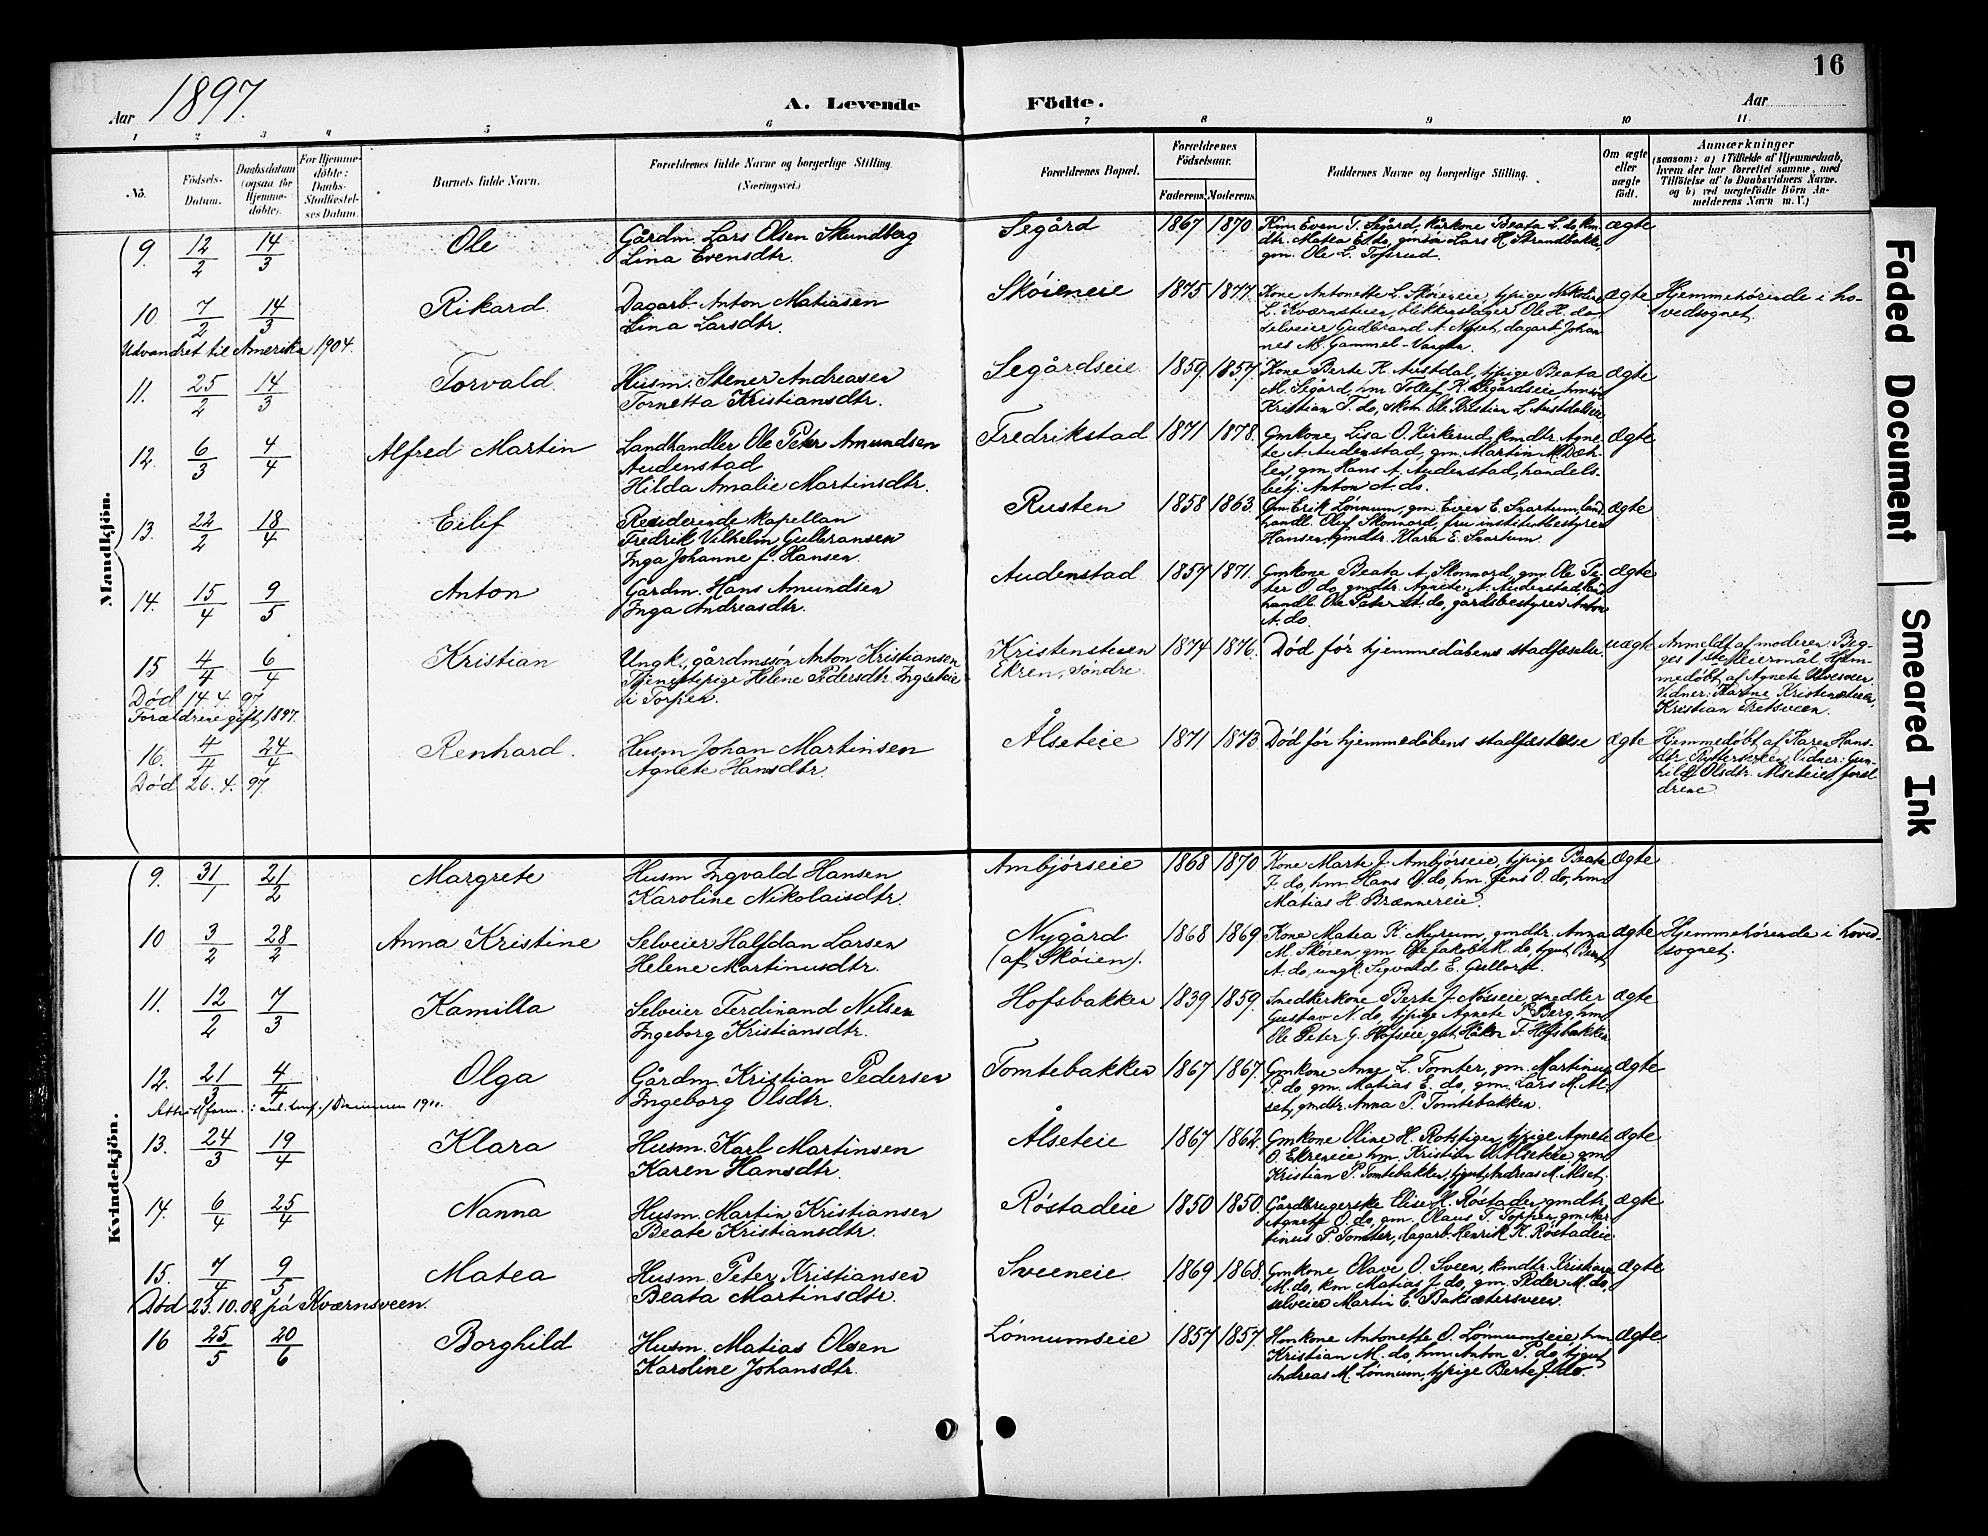 16
Aar 1897. A. Levende Födte. Aar
1 2 3 4 5 6 7 8 9 10 11
No.
Födsels-
Datum.
Daabsdatum
(ogsaa for
Hjemme-
döbte).
For Hjemme-
döbte:
Daabs-
Stadfæstel-
ses Datum.
Barnets fulde Navn.
Forældrenes fulde Navne og borgerlige Stilling.
(Næringsvei.)
Forældrenes Bopæl.
Forældrenes
Födselsaar.
Faderens. Moderens.
Faddernes Navne og borgerlige Stilling.
Om ægte
eller
uægte
födt.
Anmærkninger
(saasom: a) i Tilfælde af Hjemmedaab,
hvem der har forrettet samme, med
Tilföielse af to Daabsvidners Navne.
og b) ved uægtefödte Börn An-
melderens Navn m. V.)
Mandkjön.
9. 12/2 14/3 Ole
Gårdm. Lars Olsen Skundberg
Lina Evensdtr.
Segård 1867 1870
Km. Even T. Segård, kårkone Beata L. do, km.
dtr. Matea E. do, gmsøn Lars H. Strandbakke,
gm. Ole L. Tofsrud.
ægte
10. 7/2 14/3 Rikard
Dagarb. Anton Matiasen
Lina Larsdtr.
Skøieneie 1875 1877.
Kone Antonette L. Skøieneie, tjpige Nikoline
L. Kværnstuen, blikkenslager Ole H. do,
selveier Gudbrand A. Nøset, dagarb. Johan
nes M. Gammel-Vangen.
ægte
Hjemmehørende i ho-
vedsognet.
Udvandret til Amerika 1904.
11. 25/2 14/3 Torvald
Husm. Stener Andreasen
Tornetta Kristiansdtr.
Segårdseie 1859. 1857.
Kone Berte K. Austdal, tjpige Beata
M. Segård, hm Tollef K. Segårdseie, hmsøn
Kristian T. do, skom. Ole Kristian L. Austdalseie
ægte
12. 6/3 4/4 Alfred Martin
Landhandler Ole Peter Amundsen
Audenstad
Hilda Amalie Martinsdtr.
Fredrikstad 1871 1878.
Gmkone Lisa O. Kirkerud, kmdtr. Agne-
te A. Audenstad, gm. Martin M. Dæh-
len, gm. Hans A. Audenstad, handels-
betj. Anton A. do.
ægte
13. 22/2 18/4 Eilif
Residerende kapellan
Fredrik Vilhelm Gulbransen
Inga Johanne f. Hansen.
Rusten 1858 1863.
Gm. Erik Lønnum, gm. Even E. Svartum, land
handl. Oluf Skonnord, fru institutbestyrer
Hansen, gmdtr. Klara E. Svartum.
ægte
14. 15/4 9/5 Anton
Gårdm. Hans Amundsen
Inga Andreasdtr.
Audenstad 1857 1871.
Gmkone Beata A. Skonnord, gm. Ole Pe-
ter O. do, gmdtr. Agnete A. Audenstad, land
handl. Ole Peter A. do, gårdsbestyrer Anton
A. do.
ægte
15 4/4 6/4 Kristian
Ungk., gårdmssøn Anton Kristiansen
Tjenestepige Helene Pedersdtr. Ingseteie
i Torpen.
Kristenstuen
Ekren, søndre.
1874 1876.
Død før hjemmedåbens stadfæstelse.
uægte
Anmeldt af moderen. Beg-
ges 1ste leiermål. Hjem-
medøbt af Agnete Ulvesveen.
Vidner: Karine Kristenstuen,
Kristian Fretsveen.
Død 14.4.97.
Forældrene gift, 1897.
16. 4/4 24/4 Renhard.
Husm Johan Martinsen
Agnete Hansdtr.
Ålseteie 1871 1873
Død før hjemmedåbens stadfæstelse
ægte
Hjemmedøbt af Karen Hans-
dtr. Rytterseter. Vidner: Gun-
hild Olsdtr. Alseteie, foræl-
drene.
Død 26.4.97.
Kvindekjön.
9. 31/1 21/2 Margrete
Husm Ingvald Hansen
Karoline Nikolaisdtr.
Ambjørseie 1868 1870
Kone Marte J. Ambjørseie, tjpige Beate
J. do, hm. Hans O. do, hm. Jens O. do, hm
Matias H. Brænnereie.
ægte
10 3/2 28/2 Anna Kristine
Selveier Halfdan Larsen
Helene Martinusdtr.
Nygård
(af Skøien).
1868 1869
Kone Matea K. Myrum, gmdtr. Anna
M. Skøien gm. Ole Jakob M. do, tjgut Bernt
A. do, ungk. Sigvald E. Gullord.
ægte
Hjemmehørende i hoved-
sognet.
11. 12/2 7/3 Kamilla
Selveier Ferdinand Nilsen
Ingeborg Kristiansdtr.
Hofsbakken 1839 1859.
Snedkerkone Berte J. Nøsseie, snedker
Gustav N. do, tjpige Agnete P. Berg, hm
Ole Peter G. Hofseie, gut Håkon F. Hofsbakken
ægte
12. 21/3 4/4 Olga
Gårdm. Kristian Pedersen
Ingeborg Olsdtr.
Tomtebakken 1867 1867.
Gmkone Anne L. Tomter, gm. Martinus
P. do gm. Matias E. do, gm. Lars M. Al-
set, gmdtr. Anna P. Tomtebakken.
ægte
13. 24/3 19/4 Klara
Husm. Karl Martinsen
Karen Hansdtr.
Ålseteie 1867 1862.
Gmkone Oline H. Rotstigen, tjpige Agnete
O. Ekreneie, hm. Kristian Alseteie, gm
Kristian P. Tomtebakken, tjgut Andreas M. Alset.
ægte
14. 6/4 25/4 Nanna
Husm. Martin Kristiansen
Beate Kristiansdtr.
Røstadeie 1850 1850.
Gårdbrugerske Elise H. Røstaden, gmdtr.
Agnete O. do, gm. Olaus T. Toppen, gm. Mar-
tinus P. Tomter, dagarb. Henrik K. Røstadeie
ægte
15. 7/4 9/5 Matea
Husm. Peter Kristiansen
Beata Martinsdtr.
Sveeneie 1869 1868.
Gmkone Olave O. Sveen, kmdtr. Kristiane
M. do, km. Matias J. do, gm. Peder M. do,
selveier Martin E. Baksætersveen.
ægte
Død 23.10.08 på Kværnsveen.
16 25/5 20/6 Borghild
Husm. Matias Olsen
Karoline Johansdtr.
Lønnumseie 1857 1857.
Hmkone Antonette O. Lønnumseie, hm
Kristian M. do, hm. Anton P. do, tjgut
Andreas M. Lønnum, tjpige Berte J. do.
ægte.
Faded Document
Smeared Ink